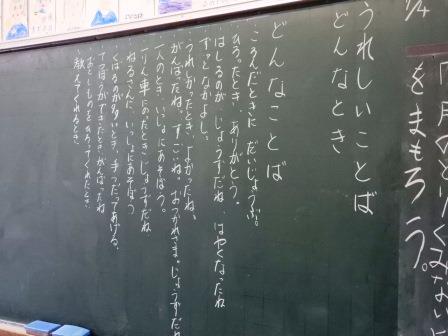 をまもろう。
うれしいことば
どんなとき
どんなことば
・ころんだときに、だいじょうぶ。
・ひろったとき、ありがとう。
・はしるのが、じょうずだね、はやくなったね
・ずっとなかよし。
・うれしかったとき、よかったね。
・がんばったね。すごいね。おつかれさま。じょうずだね
・一人のとき、いっしょにあそぼう。
・一りん車にのったとき、じょうずだね
・ねるさんに、いっしょにあそぼう
・くばるのが多いとき、手つだってあげる。
・てつぼうができたとき、がんばったね
・おとしものをひろってくれたとき
・教えてくれるとき